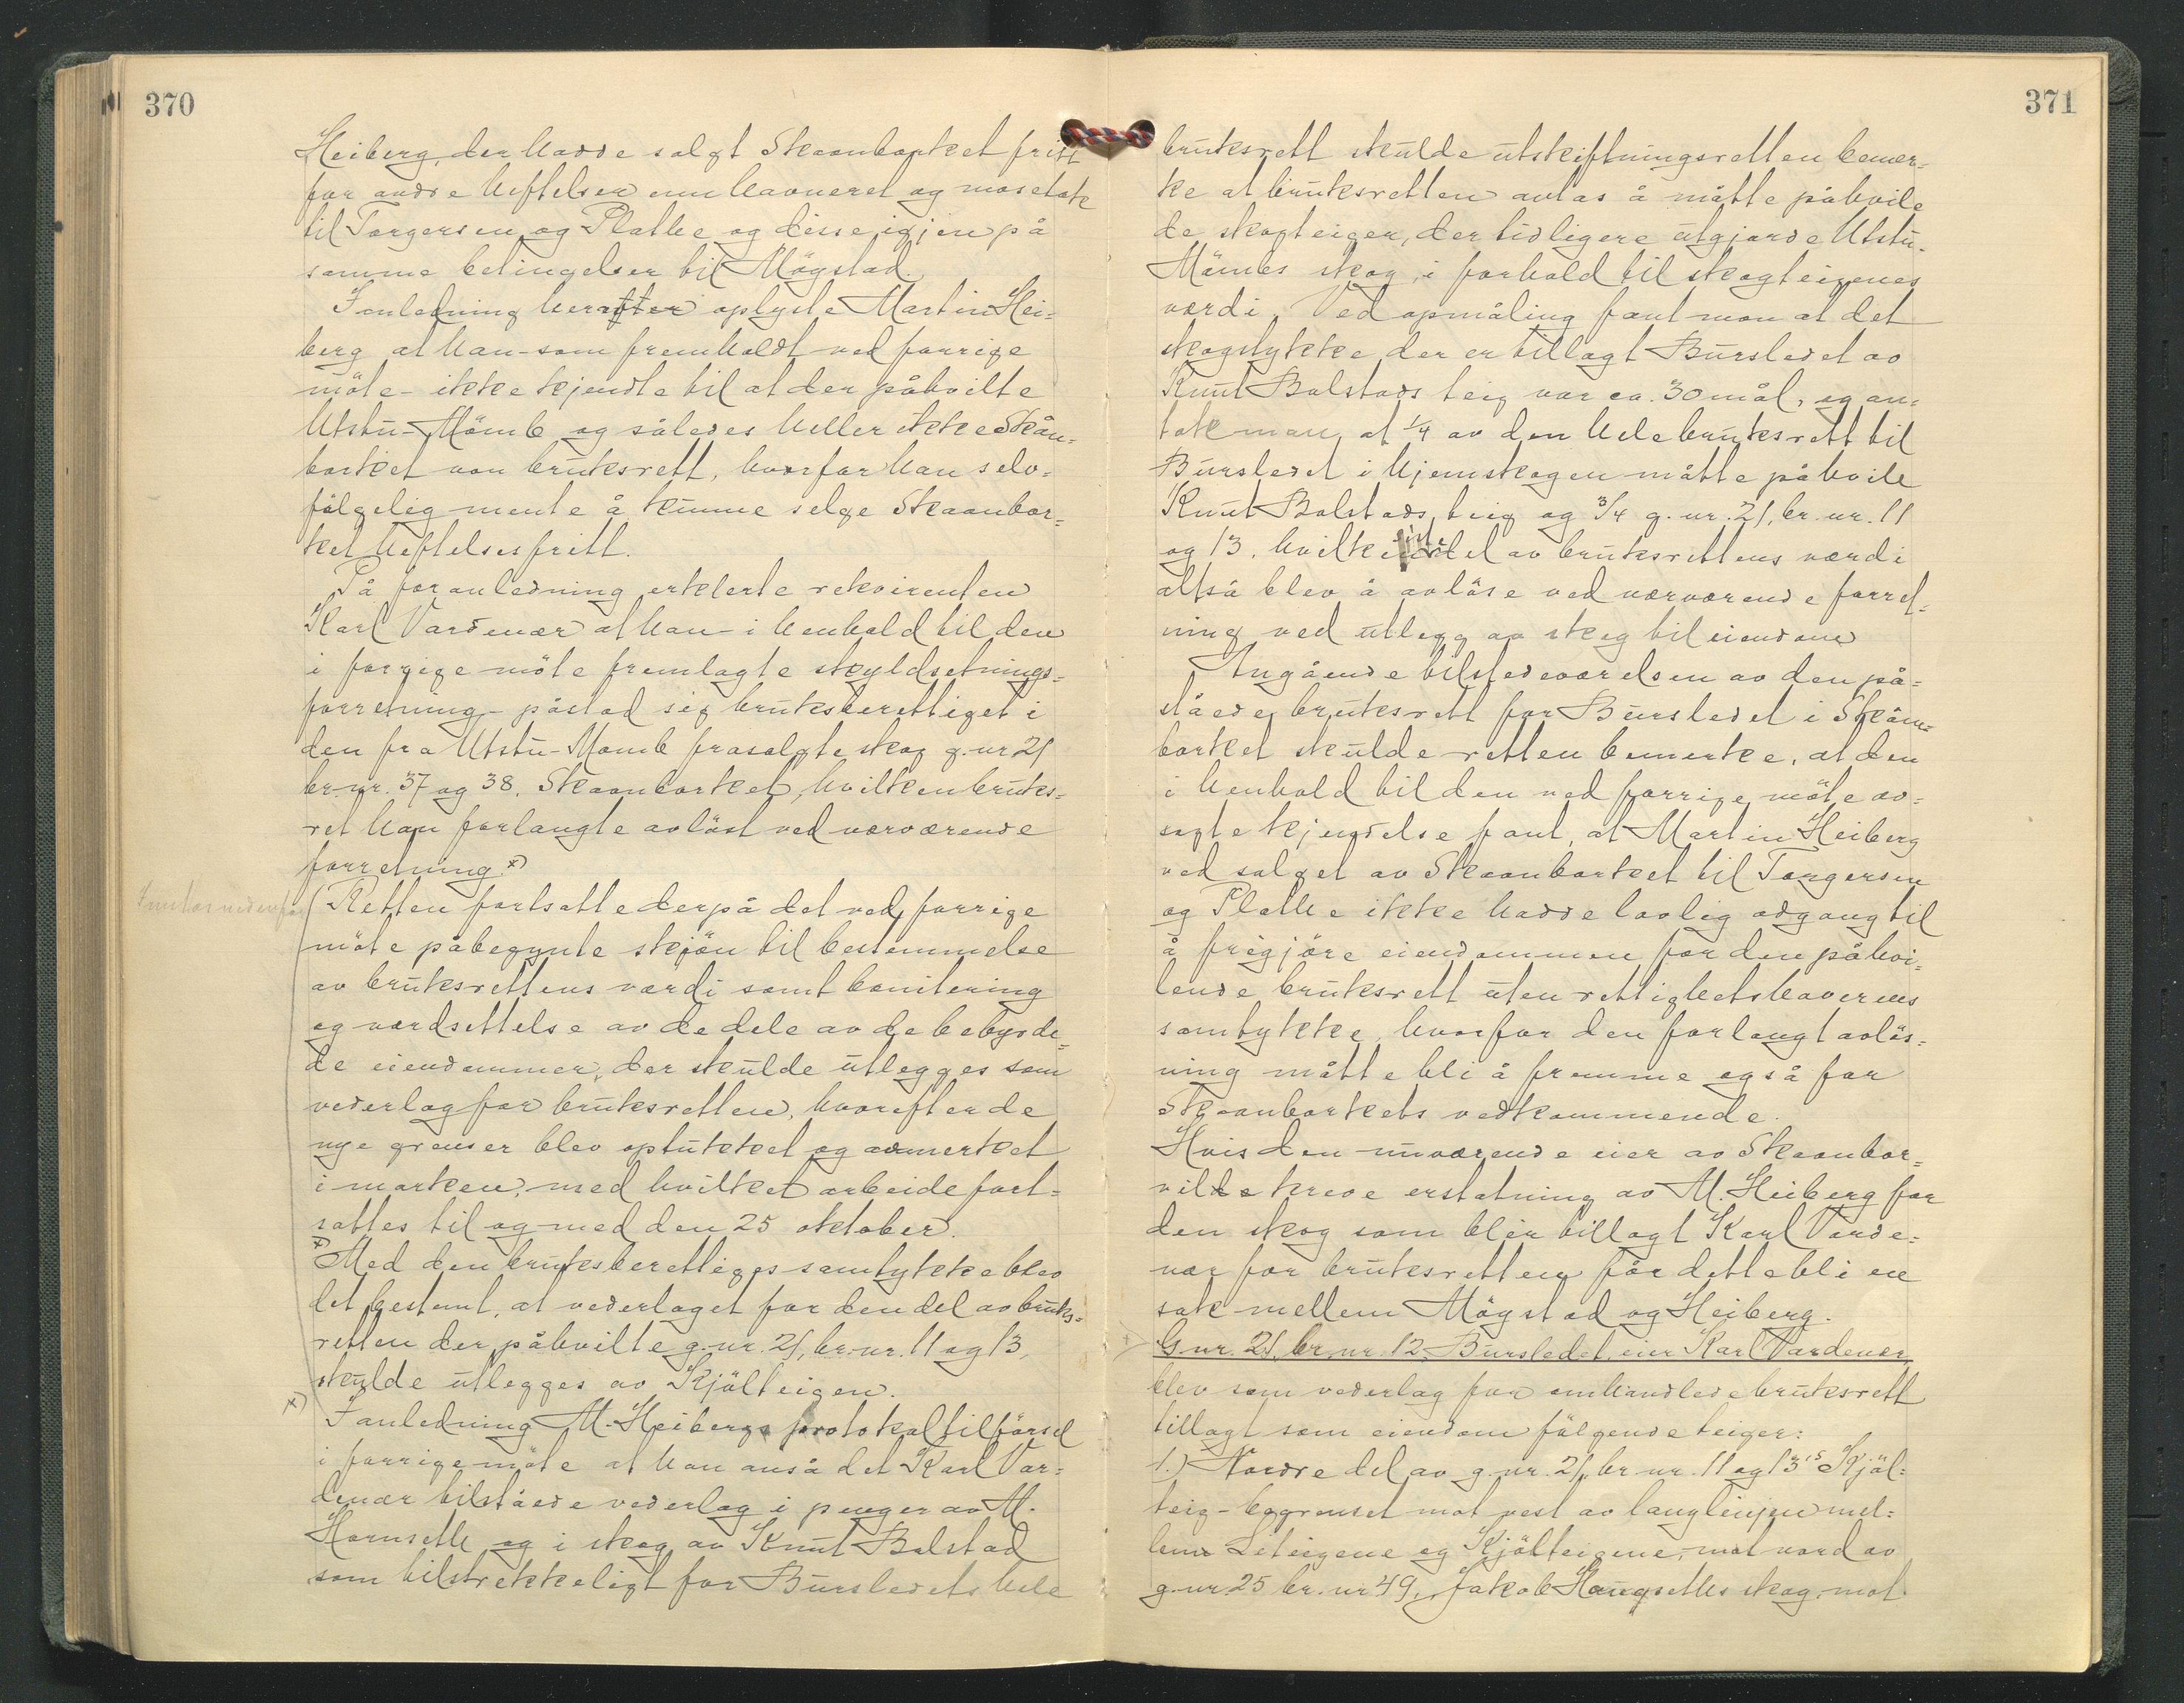 370
Heiberg, der hadde solgt Skaanbarket fritt
for andre heftelser enn havneret og mosetak
til Torgersen og Plathe og disse igjen på
samme betingelser til Mögstad.
I anledning herav oplyste Martin Hei=
berg at han - som fremholdt ved forrige
möte - ikke kjendte til at der påhvilte
Utstu-Momb og således heller ikke Skån=
barket noen bruksrett, hvorfor han selv=
fölgelig mente å kunne selge Skaanbar=
ket heftelsesfritt.
På foranledning erklerte rekvirenten
Karl Vardenær at han - i henhold til den
i forrige möte fremlagte skyldsetnings=
forretning - påstod sig bruksberettiget i
den fra Utstu-Momb frasolgte skog g.nr 21
br.nr. 37 og 38, Skaanbarket, hvilken bruks=
ret han forlangte avlöst ved nærværende
forretning. x)
Inntas nedenfor
Retten fortsatte derpå det ved forrige
möte påbegynte skjön til bestemmelse
av bruksrettens værdi samt bonitering
og værdsettelse av de dele av de bebyrde=
de eiendommer, der skulde utlegges som
vederlag for bruksretten, hvorefter de
nye grenser blev optukket og avmerket
i marken, med hvilket arbeide fort=
sattes til og med den 25 oktober.
x) Med den bruksberettiges samtykke blev
det bestemt, at vederlaget for den del av bruks=
retten der påhvilte g.nr. 21, br.nr. 11 og 13,
skulde utlegges av Kjölteigen.
x) I anledning M. Heibergs protokoltilförsel
i forrige möte at han anså det Karl Var=
denær tilståede vederlag i penger av M.
Hornseth og i skog av Knut Bolstad
som tilstrekkeligt for Bursledets hele
371
bruksrett skulde utskiftningsretten bemer=
ke at bruksretten antas å måtte påhvile
de skogteiger, der tidligere utgjorde Utstu-
Mömbs skog, i forhold til skogteigenes
værdi. Ved opmåling fant man at det
skogstykke, der er tillagt Bursledet av
Knut Bolstads teig var ca. 30 mål, og an=
tok man, at 1/4 av den hele bruksrett til
Bursledet i hjemskogen måtte påhvile
Knut Bolstads teig og 3/4 g.nr. 21, br.nr. 11
og 13, hvilken siste del av bruksrettens værdi
altså blev å avlöse ved nærværende forret=
ning ved utlegg av skog til eiendom
Angående tilstedeværelsen av den på=
ståede bruksrett for Bursledet i Skån=
barket skulde retten bemerke, at den
i henhold til den ved forrige möte av=
sagte kjendelse fant, at Martin Heiberg
ved salget av Skaanbarket til Torgersen
og Plathe ikke hadde lovlig adgang til
å frigjöre eiendommen for den påhvi=
lende bruksrett uten rettighetshaverens
samtykke, hvorfor den forlangt avlös=
ning måtte bli å fremme også for
Skaanbarkets vedkommende.
Hvis den nuværende eier av Skaanbar=
vilde kreve erstatning av M. Heiberg for
den skog som blir tillagt Karl Varde=
nær for bruksretten får dette bli en
sak mellem Mögstad og Heiberg.
G.nr. 21, br.nr. 12, Bursledet, eier Karl Vardenær,
blev som vederlag for omhandlede bruksrett
tillagt som eiendom fölgende teiger:
1.) Nordre del av g.nr. 21, br.nr. 11 og 13's Kjöl=
teig - begrenset mot vest av langlinjen mel=
lem Liteigene og Kjölteigene, mot nord av
g.nr 25 br.nr 49, Jakob Haugseths skog, mot